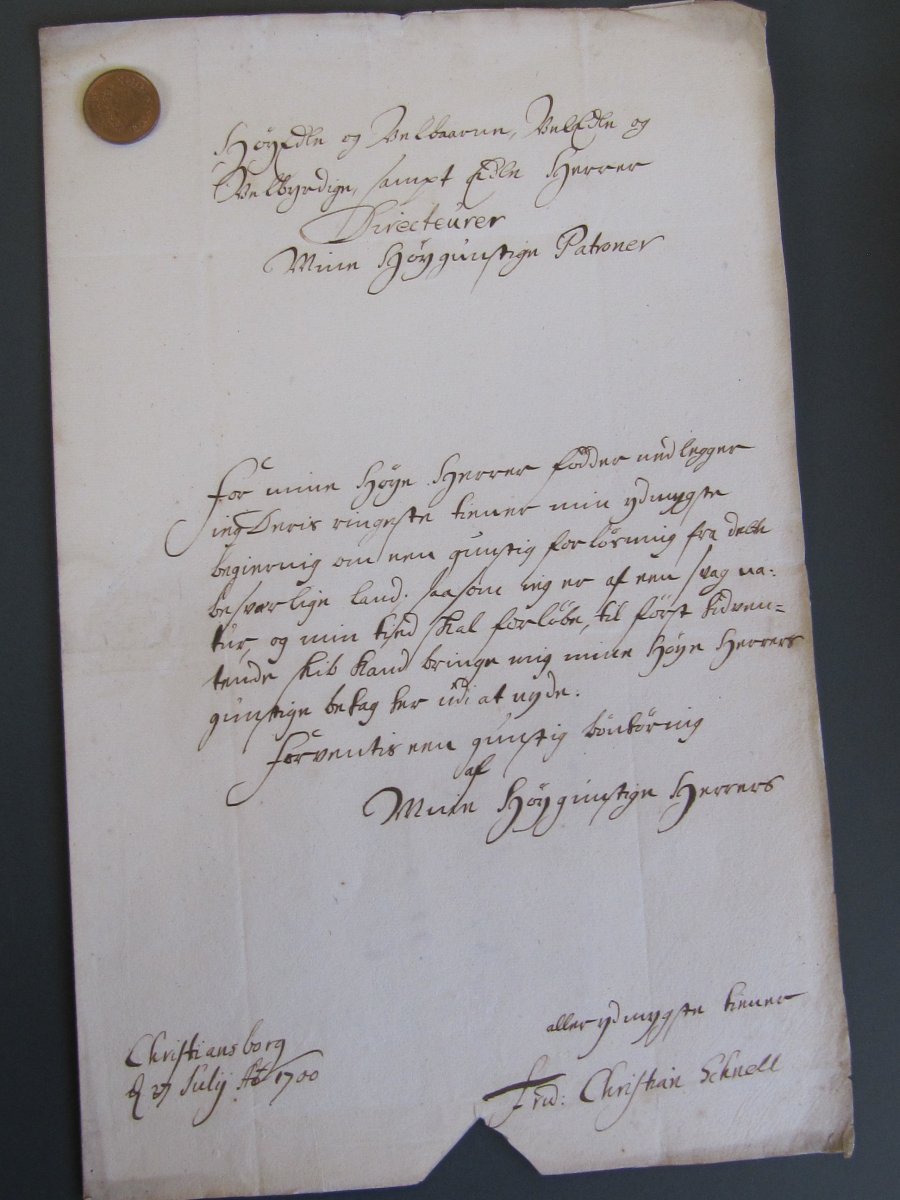 HöyEdle og Velbaarne, VelEdle og
Velbyrdige, sampt Edle Herrer
Directeurer
Mine Höygunstige Patroner
For mine Höye Herrer födder nedlegger
ieg Deris ringeste tiener min ydmygste
begiernig om een gunstig forlösning fra dette
besvarlige land. saasom ieg er af een svag na:
tur, og min tised skal forlöbe, til först tidven=
tende skib kand bringe mig mine Höye Herrers
gunstige betag ter udi at nyde.
Forventis een gunstig bönhörnig
af
Mine Höygunstige Herrers
aller ydmygste tiener
Christiansborg
d 27 Julij Ao 1700
Frid: Christian Schnell